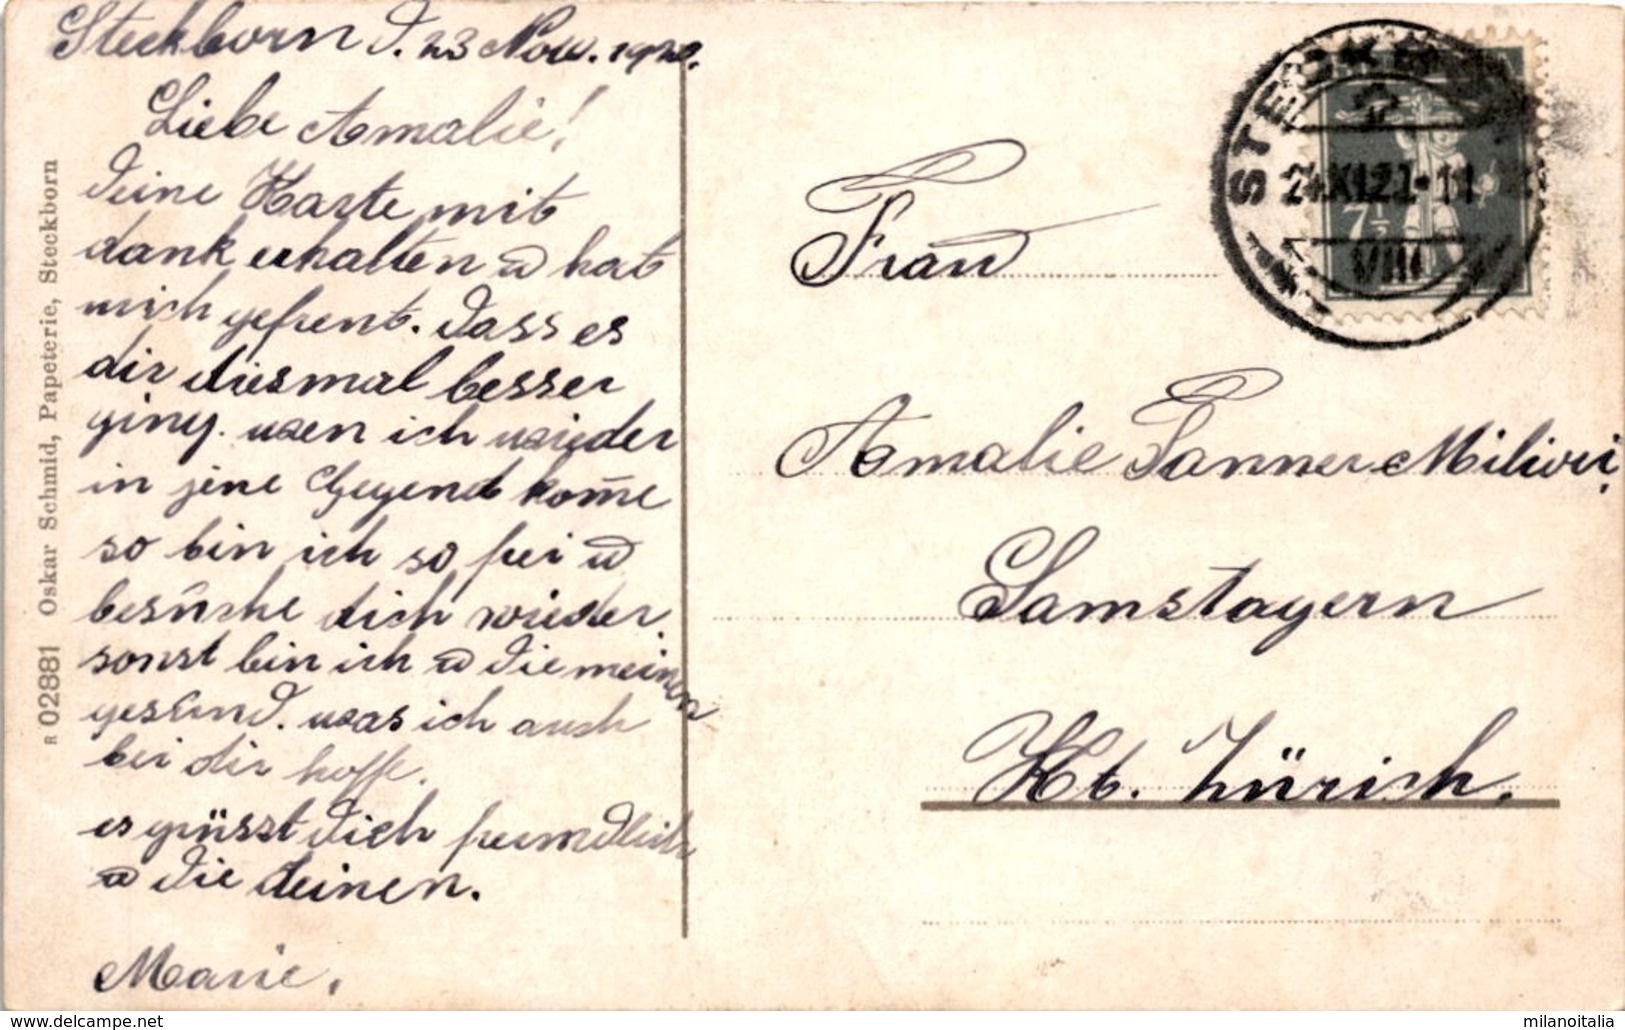 Steckborn d. 23 Nov. 192
Liebe Amalie!
deine Karte mit
dank erhalten u hat
mich gefreut. dass es
dir diesmal besser
ging. wen ich wieder
in jene Gegend kom̄e
so bin ich so frei u
besūche dich wieder.
sonst bin ich u die meinen
gesūnd. was ich auch
bei dir hoffe.
es grüsst dich freundlich
u die deinen.
Marie.
R 02881 Oskar Schmid, Papeterie, Steckborn
Frau
Amalie Tanner
Samstagern
Kt. Zürich.
STECKBORN
24.XI.21-11
VIII
7½
www.delcampe.net
milanoitalia